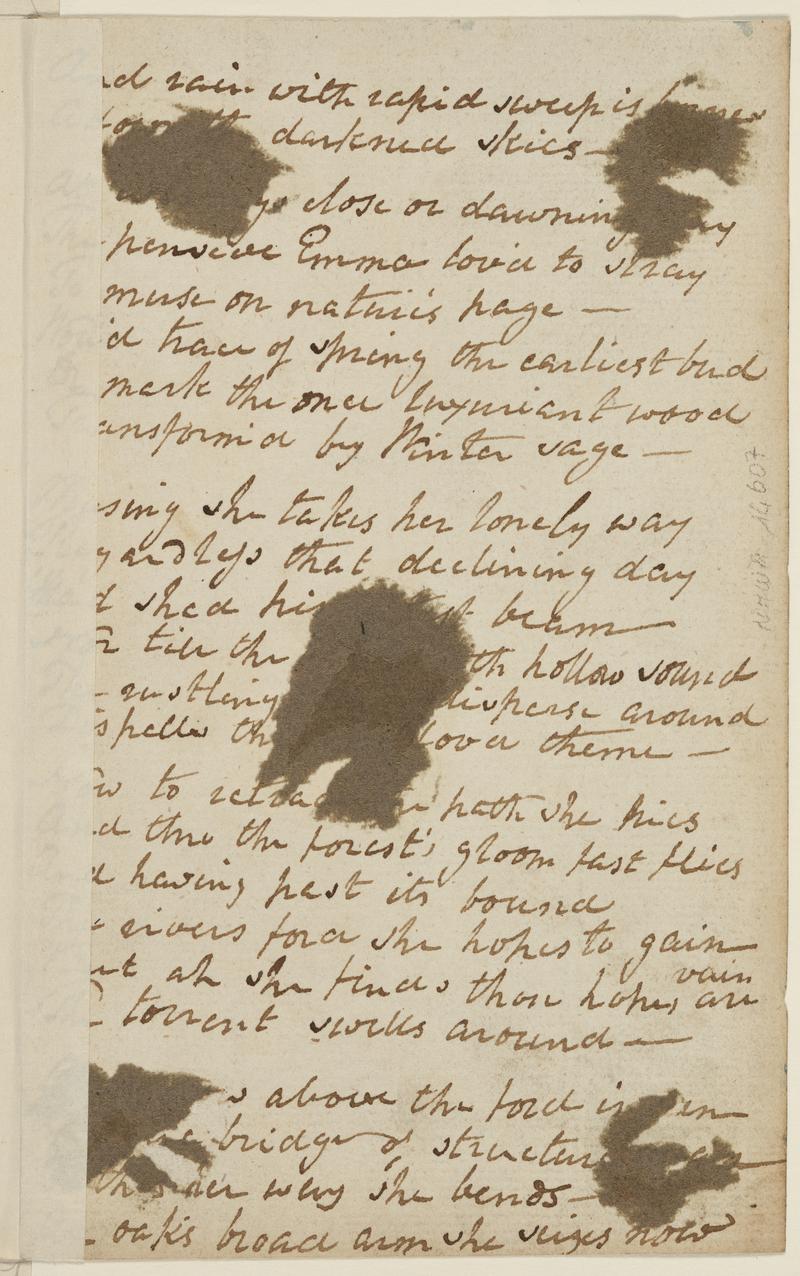 nd rain with rapid sweep is
darkned skies —
close or dawning
pensive Emma lov'd to stray
muse on nature's page —
'd trace of spring the earliest bud
mark the once luxuriant wood
ansform'd by Winter rage —
sing she takes her lonely way
gardless that declining day
d shed his beam —
till the th hollow sound
rustling disperse around
spells th lov'd theme —
w to retrace path she hies
d thro the forest's gloom fast flies
d having past its bound
rivers ford she hopes to gain —
ut ah she finds those hopes are vain
torrent swells around —
above the ford is seen —
bridge of structure
her way she bends —
oak's broad arm she seizes now
NHWR 14,607